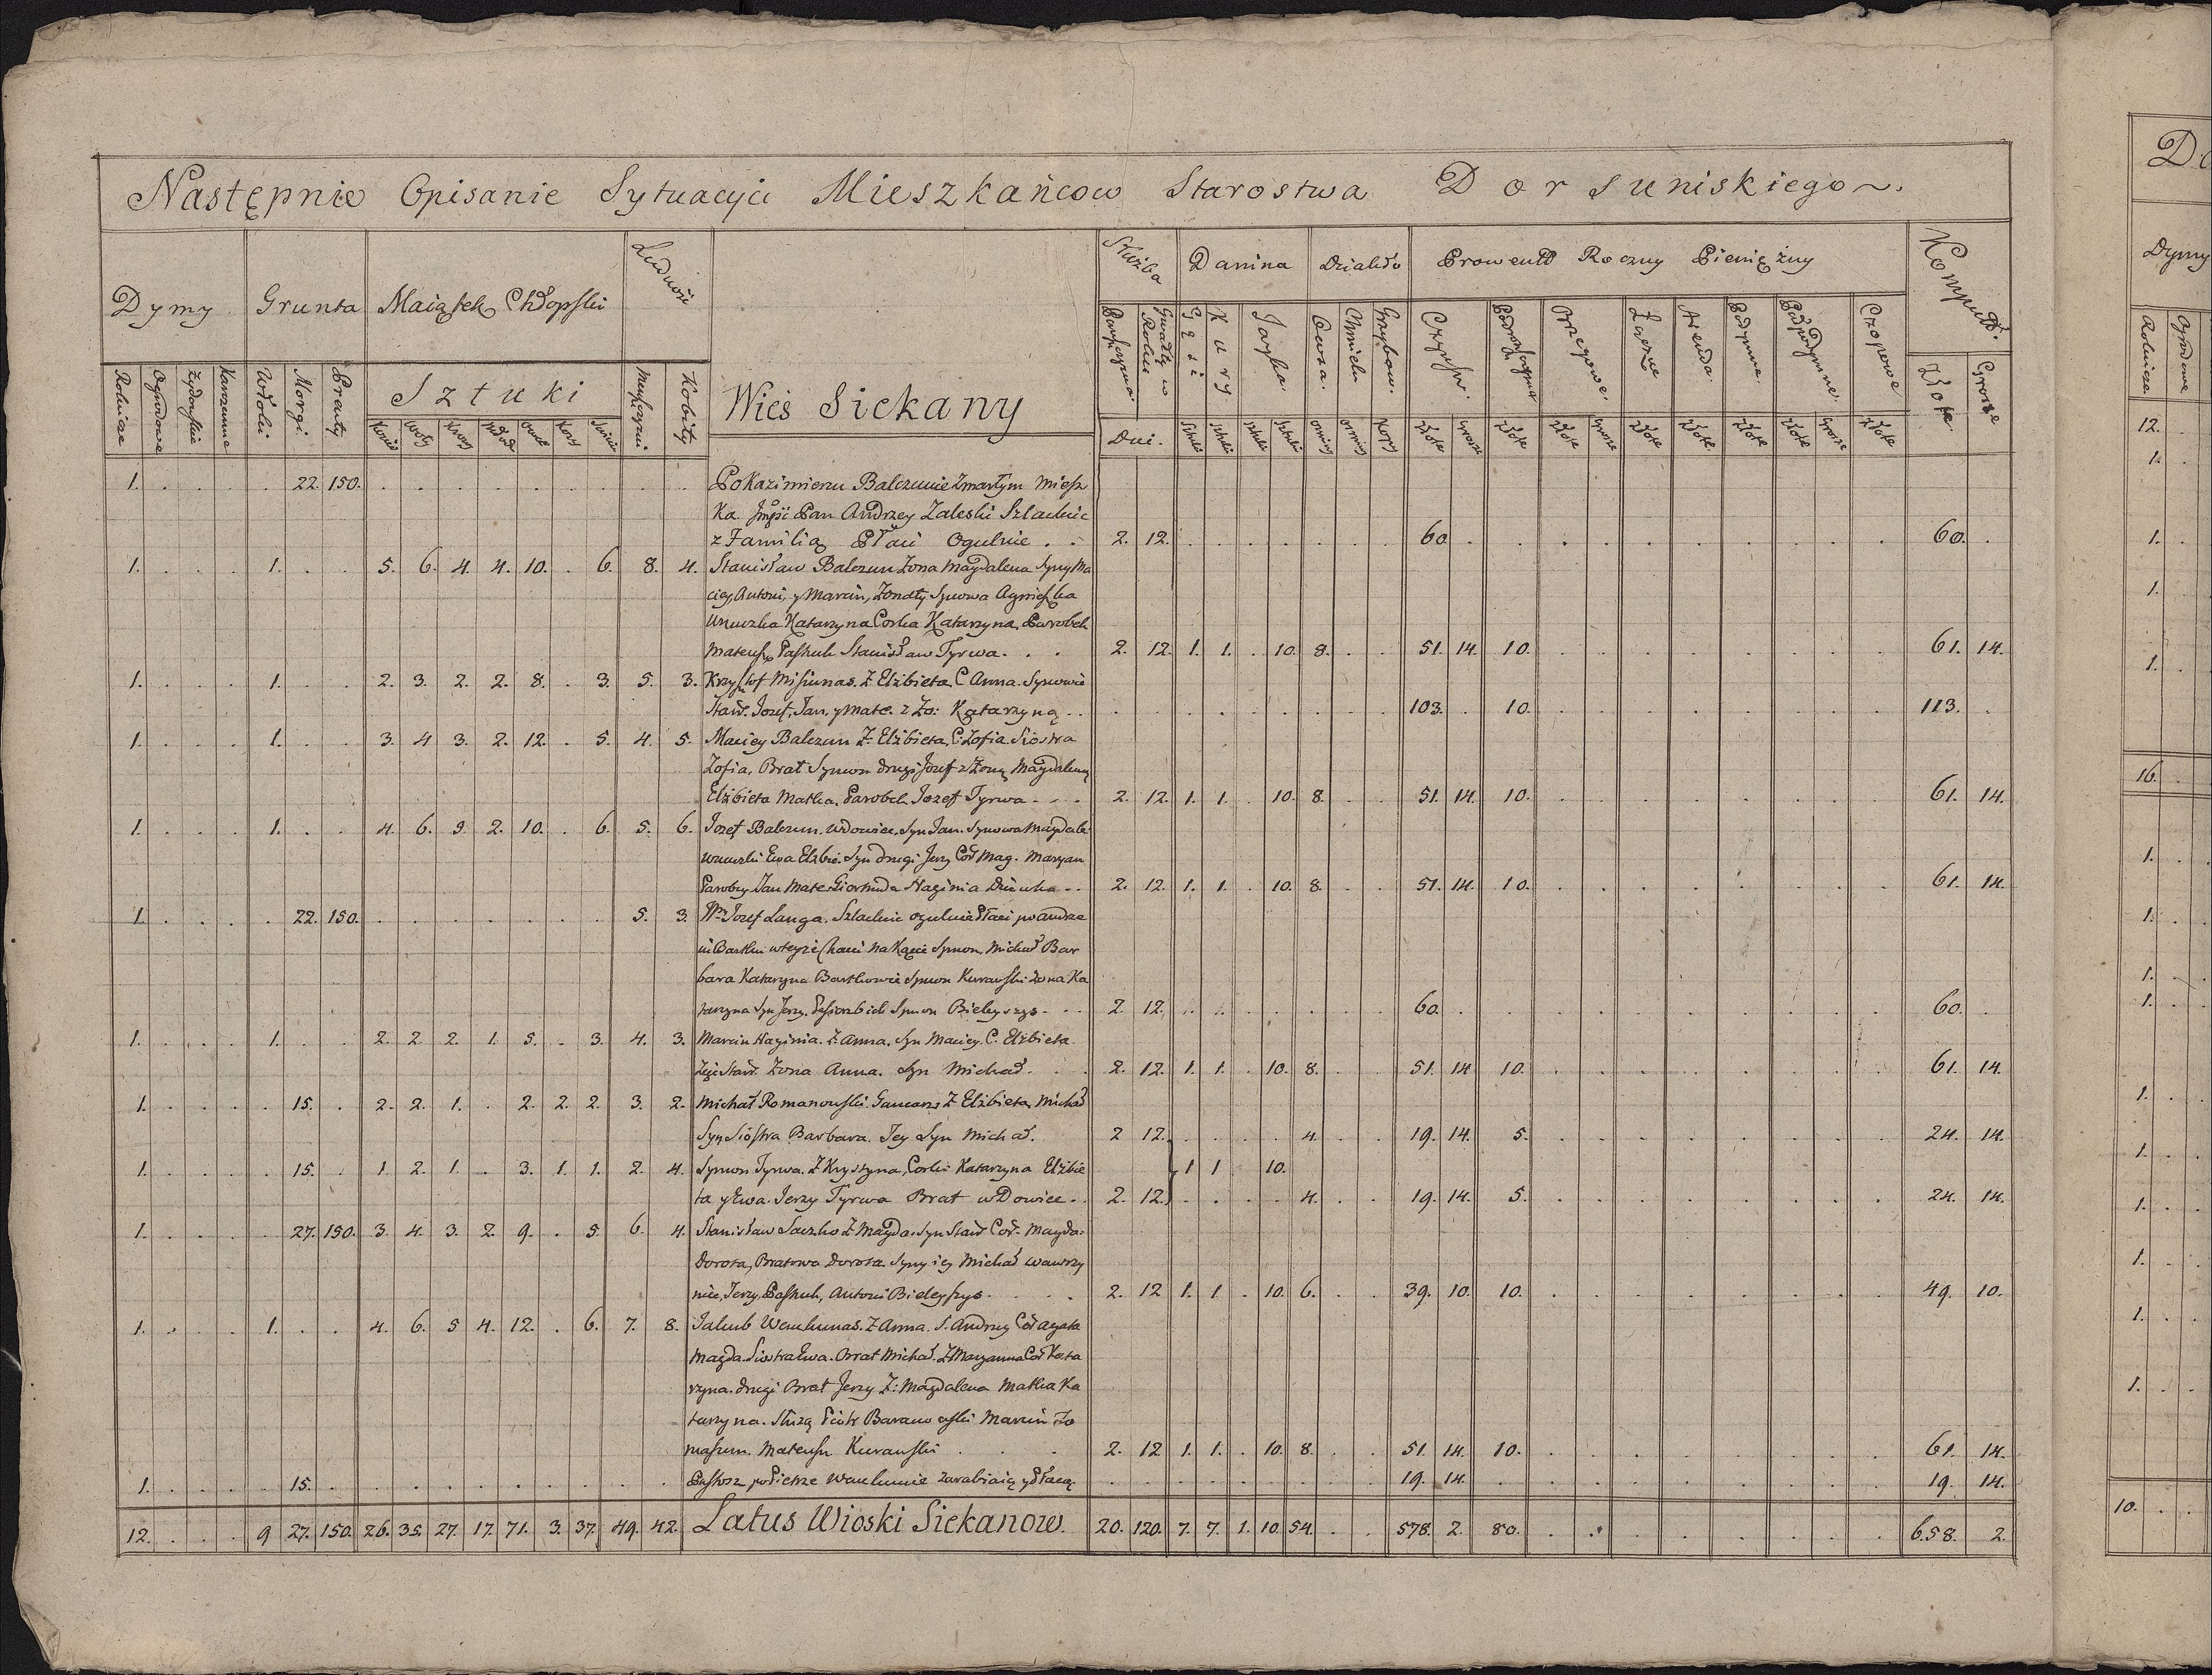 Następnie Opisanie Sytuacyi Mieszkańcow Starostwa Dorsuniskiego
Dymy Grunta Maiątek Chłopski Ludność Służba Danina Dziakło Prowent Roczny Pieniężny Komput
Rolnicze Ogrodowe Żydowskie Karczemne Włoki Morgi Pręty Sztuki Męszczyzni Kobiety
Wieś Siekany
Gwałty w Roku Gęsi Kury Jayka Owsa Chmielu Grzybow Czynsz Brzegowe Arenda Podymne Czopowe Złote Grosze
Dni.
1. . . . . 22. 150. . . . . . . . . . Po Kazimierzu Balczunie Zmarłym Miesz
ka Jmść Pan Andrzey Zaleski Szlachcic
z Familią Płaci Ogulnie . . 2. 12. . . . . . . . 60. . . . . . . . . . . . 60. .
1. . . . 1. . . 5. 6. 4. 4. 10. . 6. 8. 4. Stanisław Balczun Żona Magdalena Syny Ma
ciey, Antoni, y Marcin, Żonaty Synowa Agnieszka
Wnuczka Katarzyna Corka Katarzyna, Parobek
Mateusz Pastuch Stanisław Tyrwa . . . 2. 12. 1. 1. . 10. 8. . . 51. 14. 10. . . . . . . . . . 61. 14.
1. . . . 1. . . 2. 3. 2. 2. 8. . 3. 5. 3. Krzysztof Misiunas. Ż Elżbieta C Anna. Synowie
Stanł. Jozef, Jan, y Mate. z Żo: Katarzyną . . . . . . . . . . . 103. . 10. . . . . . . . . . 113. .
1. . . . 1. . . 3. 4 3. 2. 12. . 5. 4. 5. Maciey Balczun Ż: Elżbieta, C: Zofia Siostra
Zofia, Brat Symon drugi Jozef z Żoną Magdaleną
Elżbieta Matka, Parobek Jozef Tyrwa . . . 2. 12. 1. 1. . 10. 8. . . 51. 14. 10. . . . . . . . . . 61. 14.
1. . . . 1. . . 4. 6. 3. 2. 10. . 6. 5. 6. Jozef Balczun, Wdowiec, Syn Jan. Synowa Magdale:
Wnuczki Ewa Elżbie. Syn drugi Jerzy Coł Mag. Maryan
Parobcy Jan Mate. Hazinia Dziewka . . 2. 12. 1. 1. . 10. 8. . . 51. 14. 10. . . . . . . . . . 61. 14.
1. . . . . 22. 150. . . . . . . . 5. 3. Jozef Langa. Szlachcic ogulnie Płaci po Andrze
iu Bartku w teyże Chaci na Kącie Symon, Michał Bar
bara Katarzyna Bartkowie Symon Kurauski Żona Ka
tarzyna Syn Jerzy, Symon Bieleyszys . . . 2. 12. . . . . . . . 60. . . . . . . . . . . . 60. .
1. . . . 1. . . 2. 2. 2. 1. 5. . 3. 4. 3. Marcin Hazinia. Ż. Anna, Syn Maciey. C. Elżbieta
Zięć Stanł. Żona Anna. Syn Michał. . . 2. 12. 1. 1. . 10. 8. . . 51. 14 10. . . . . . . . . . 61. 14.
1. . . . . 15. . 2. 2. 1. . 2. 2. 2. 3. 2. Michał Romanouski Ż Elżbieta, Michał
Syn Siostra Barbara. Jey Syn Michał. 2 12. . . . . 4. . . 19. 14. 5. . . . . . . . . . 24. 14.
1. . . . . 15. . 1. 2. 1. . 3. 1. 1. 2. 4. Symon Tyrwa. Ż Krystyna, Corki Katarzyna Elżbie 1 1 . 10.
ta y Ewa. Jerzy Tyrwa Brat wDowiec . . 2. 12. . . . . 4. . . 19. 14. 5. . . . . . . . . . 24. 14.
1. . . . . 27. 150. 3. 4. 3. 2. 9. . 5 6. 4. Stanisław Saczko Ż Magda. Syn Stanł Coł. Magda:
Dorota, Bratowa Dorota. Syny iey Michał Wawrzy
niec, Jerzy, Pastuch, Antoni Bieleyszys . . . . 2. 12 1. 1. . 10. 6. . . 39. 10. 10. . . . . . . . . . 49. 10.
1. . . . 1. . . 4. 6. 5 4. 12. . 6. 7. 8. Jakub Waulunas. Ż Anna. S. Andrzey Coł Agata
Magda. Siostra Ewa. Brat Michał. Ż Maryanna Coł Kata
rzyna. drugi Brat Jerzy Ż: Magdalena Matka Ka
tarzyna. Służą Piotr Baranowski Marcin To
maszun. Mateusz Kurauski . . . 2. 12 1. 1. . 10. 8. . . 51. 14. 10. . . . . . . . . . 61. 14.
1. . . . . 15. . . . . . . . . . . Pustosz po Pietrze Waulunie zarabiaią y Płacą . . . . . . . . . 19. 14. . . . . . . . . . . 19. 14.
12. . . . 9 27. 150. 26. 35. 27. 17. 71. 3. 37. 49. 42. Latus Wioski Siekanow 20. 120. 7. 7. 1. 10. 54. . . 578. 2. 80. . . . . . . . . . 658. 2.